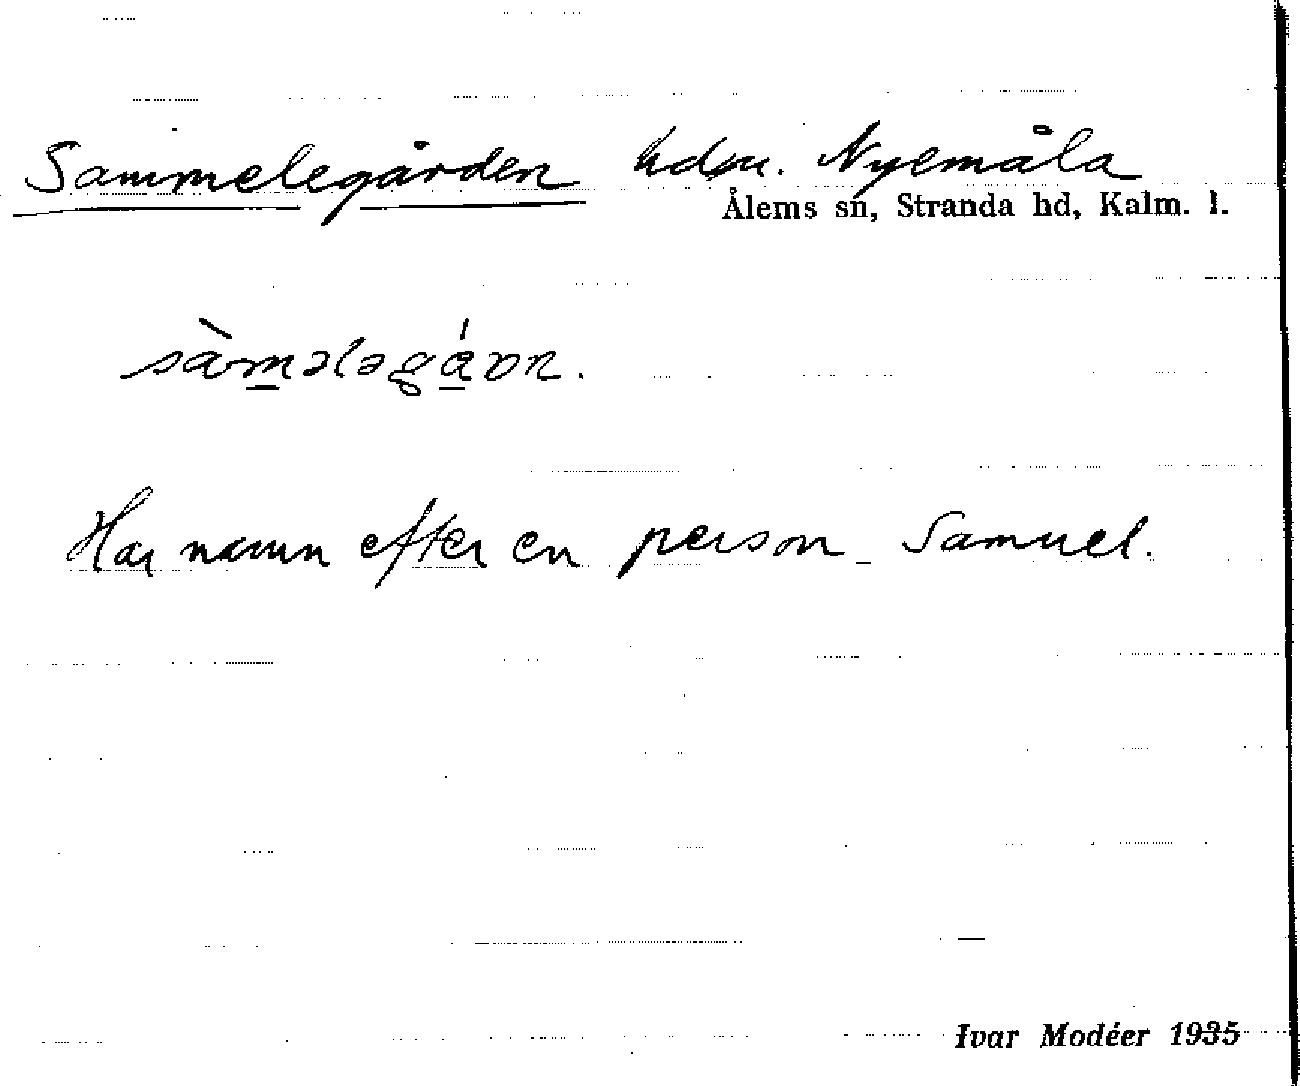 Sammelegården hdsn. Nyemåla
Ålems sn, Stranda hd, Kalm. l.
sàmələgáɒn.
Har namn efter en person Samuel.
Ivar Modéer 1935